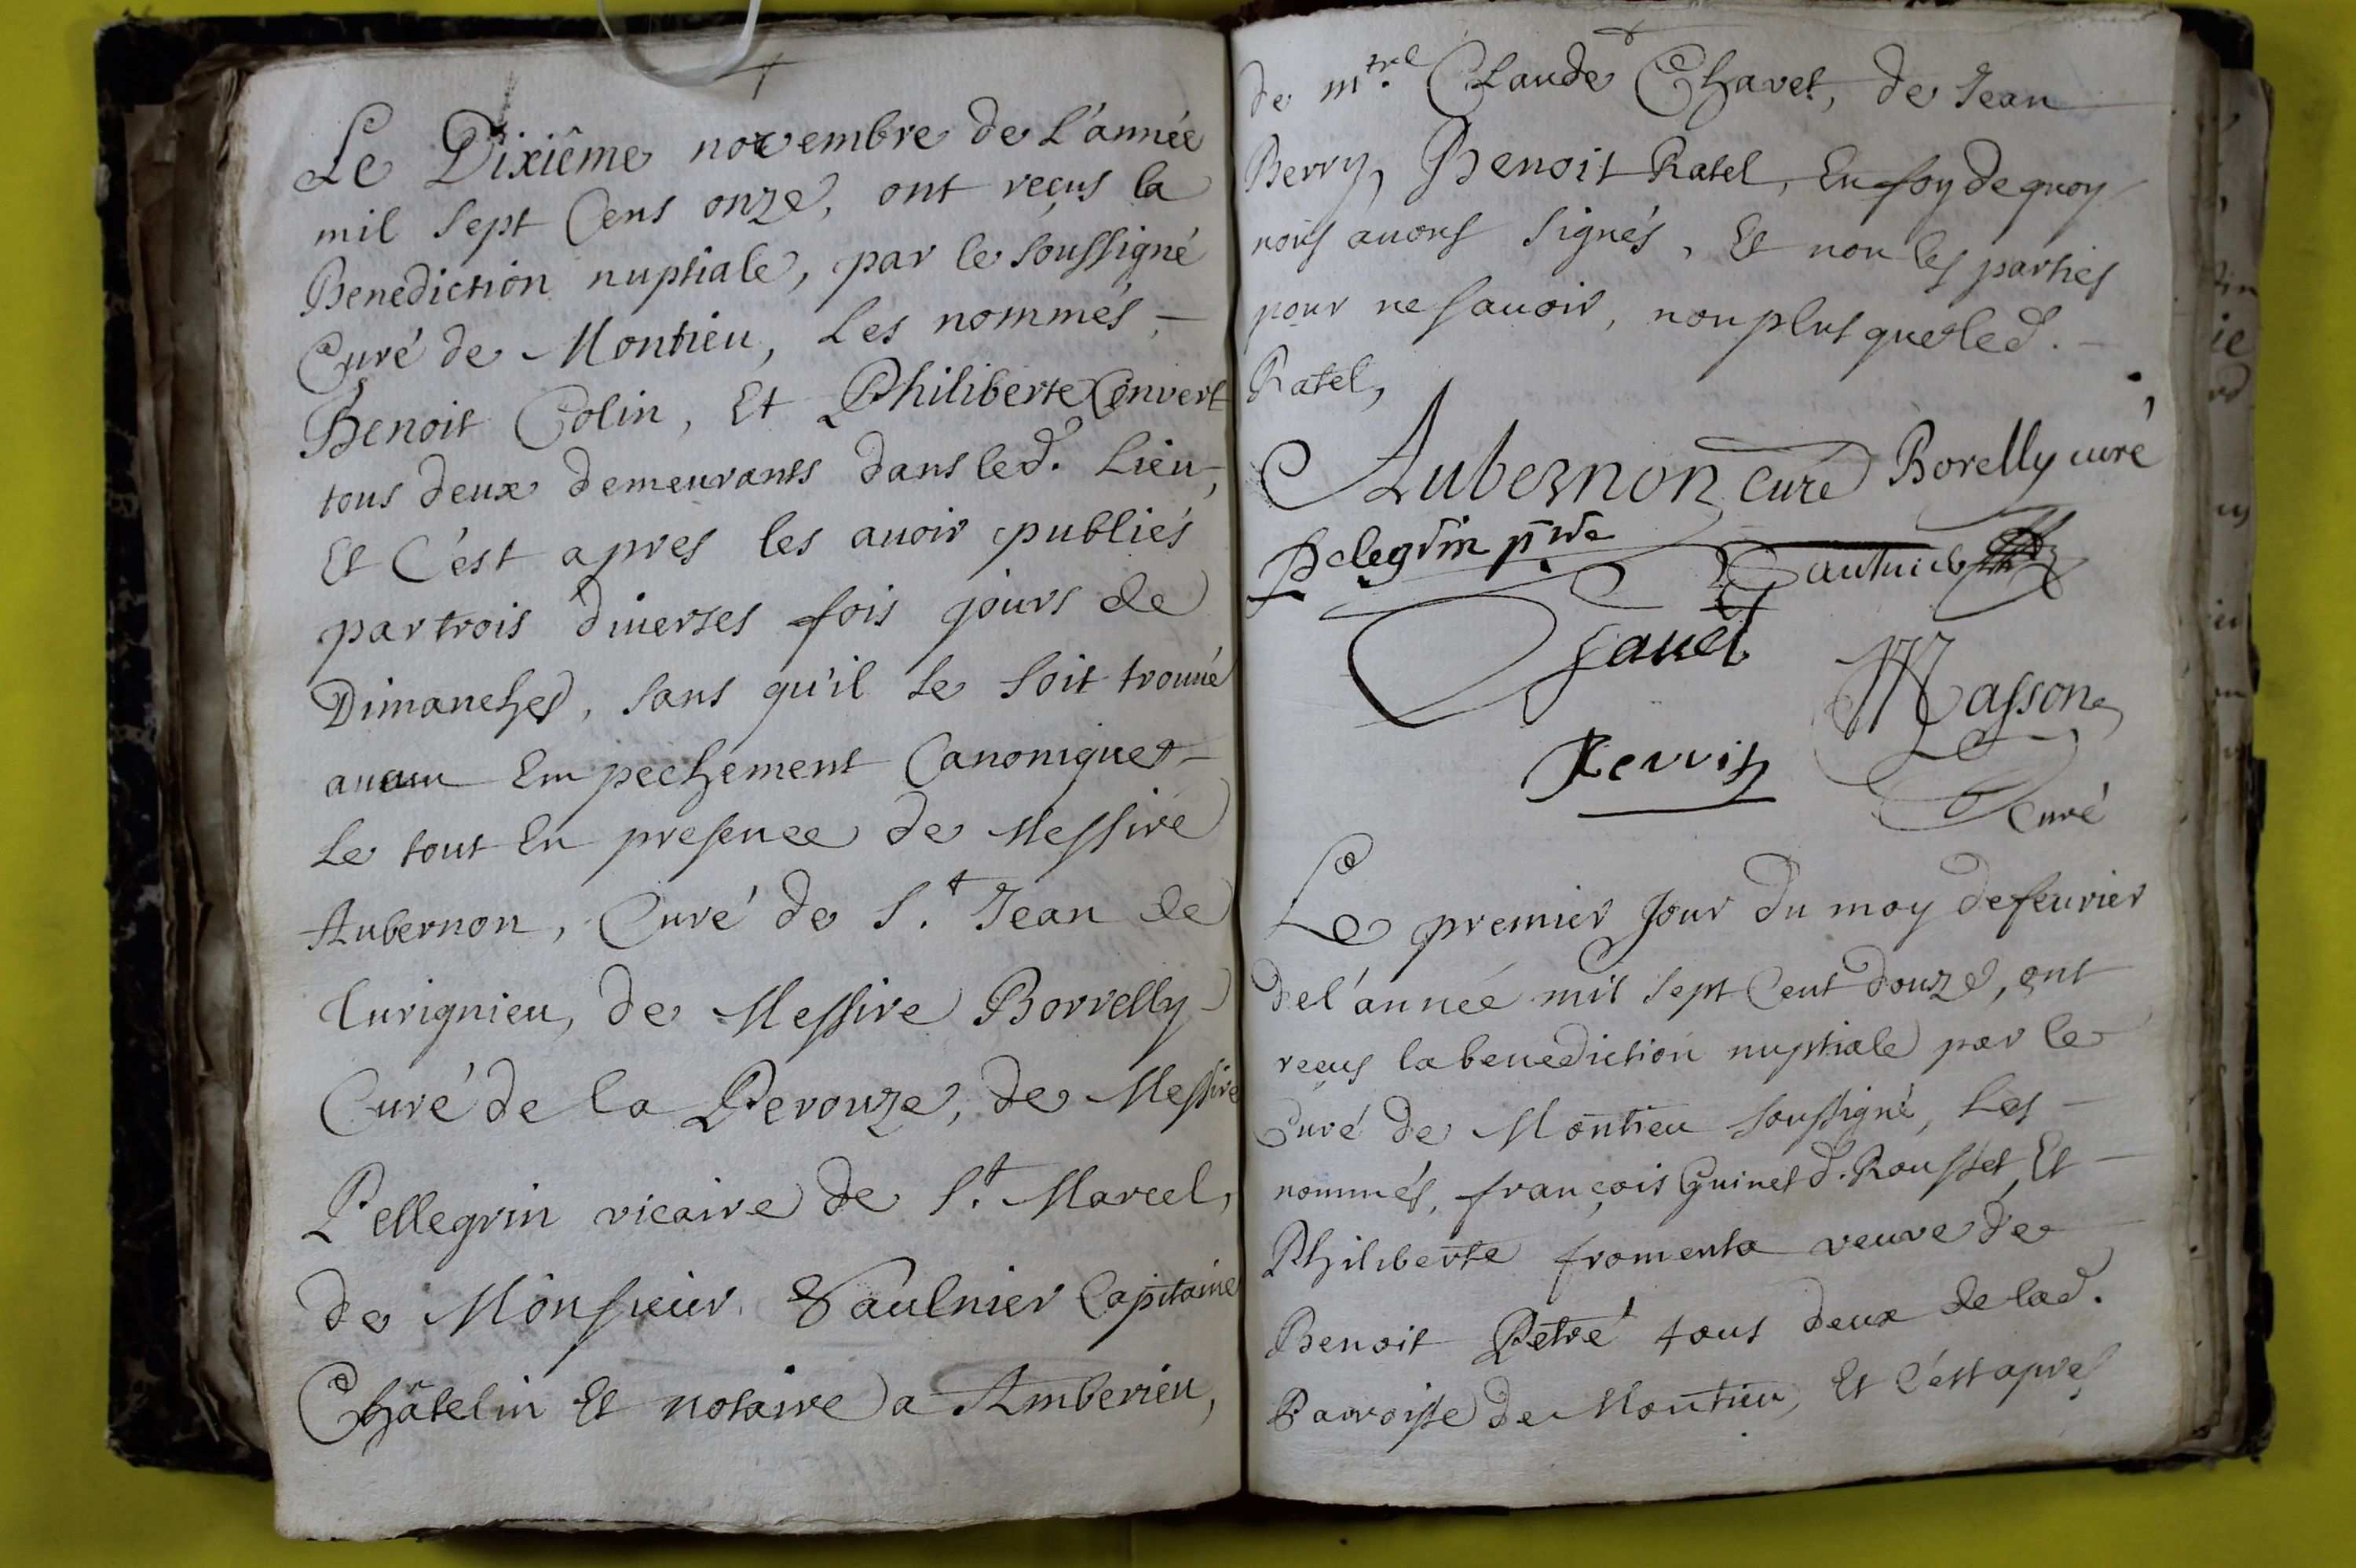 Le Dixiême novembre de L'année
mil sept Cens onze, ont reçus la
Benediction nuptiale, par le soussigné
Curé de Montieu, Les nommés –
Benoit Colin, Et Philiberte Convert
tous deux demeurants dans led. Lieu,
Et C'est apres les auoir publiés
par trois diuerses fois jours de
Dimanches, sans qu'il se soit trouué
aucun Empechement Canonique –
Le tout En presence de Messire
Aubernon, Curé de S.t Jean de
Turignieu, de Messire Borrelly
Curé de la Perouze, de Messire
Pellegrin vicaire de S.t Marcel,
de Monsieur Vaulnier Capitaine
Châtelin Et notaire a Amberieu,
de m.tre Claude Chavet, de Jean
Berry, Benoit Ratel, En foy de quoy
nous auons signés, Et non les parties
pour ne sauoir, non plus que led. –
Ratel,
Aubernon Curé Borelly curé
Pelegrin p.tre
Chauet
Masson
Berrit
Curé
Le premier Jour du moy de feurier
de l'année mil sept Cent douze, ont
reçus la benediction nuptiale par le
Curé de Montieu soussigné, Les –
nommés, françois Guinet d. Rousset Et –
Philiberte fromenta veuve de
Benoit Petré tous deux de lad.
Parroisse de Montieu, Et C'est apres